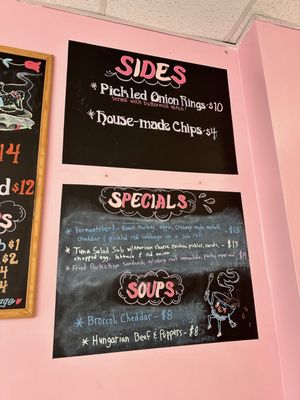 SIDES
* Pickled Onion Rings - $10
served with buttermilk ranch!
* House-made Chips $4
14
$12
$1
$2
4
4
SPECIALS
* Vermonster! - Roast turkey, apple, creamy maple
cheddar & pickled red cabbage on a sub roll - $13
* Tuna Salad Sub w/American cheese, pickles, - $13
chopped egg, lettuce & red onion
* Fried Porkchop Sandwich w/celery root remoulade, $14
SOUPS
* Broccoli Cheddar - $8
* Hungarian Beef & Peppers - $8